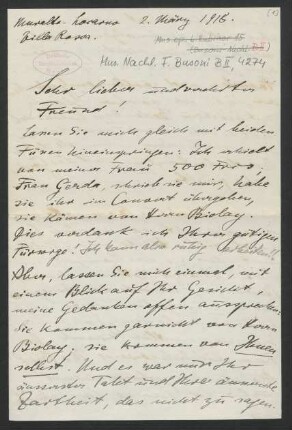 Muralto-Locarno 2. März 1916.
Villa Rossa.
Mus. Nachl. F. Busoni B II, 4274
Sehr lieber und verehrter
Freund!
lassen Sie mich gleich mit beiden
Füssen hineinspringen: Ich erhielt
von meiner Frau 500 Frcs.
Frau Gerda, schrieb sie mir, habe
sie ihr im Couvert übergeben,
sie kämen von Herrn Biolay.
Dies verdank ich Ihrer gütigen
Fürsorge! Ich kann also ruhig
Aber, lassen Sie mich einmal, mit
einem Blick auf Ihr Gesicht,
meine Gedanken offen aussprechen,
sie kommen garnicht von Herrn
Biolay. sie kommen von Ihnen
selbst. Und es war nur Ihr
äusserster Takt und Ihre
Zartheit, das nicht zu sagen.